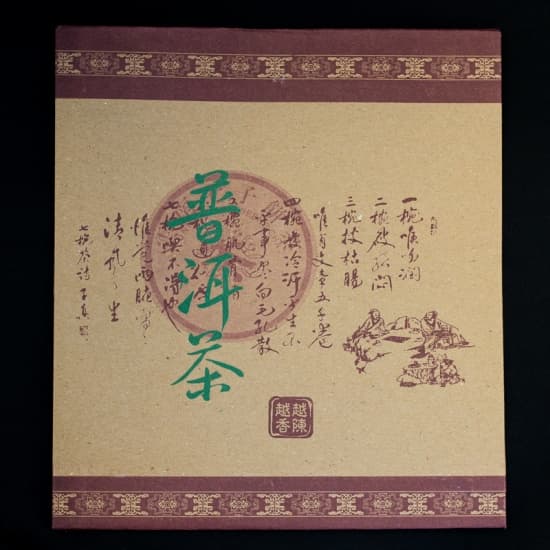 普洱茶
一碗喉吻潤
二碗破孤悶
三碗搜枯腸
唯有文字五千卷
四碗發輕汗平生不
平事盡向毛孔散
五碗肌骨清
通仙
七碗喫不得也
惟覺兩腋習習
清風生
七碗茶詩
越陳
越香